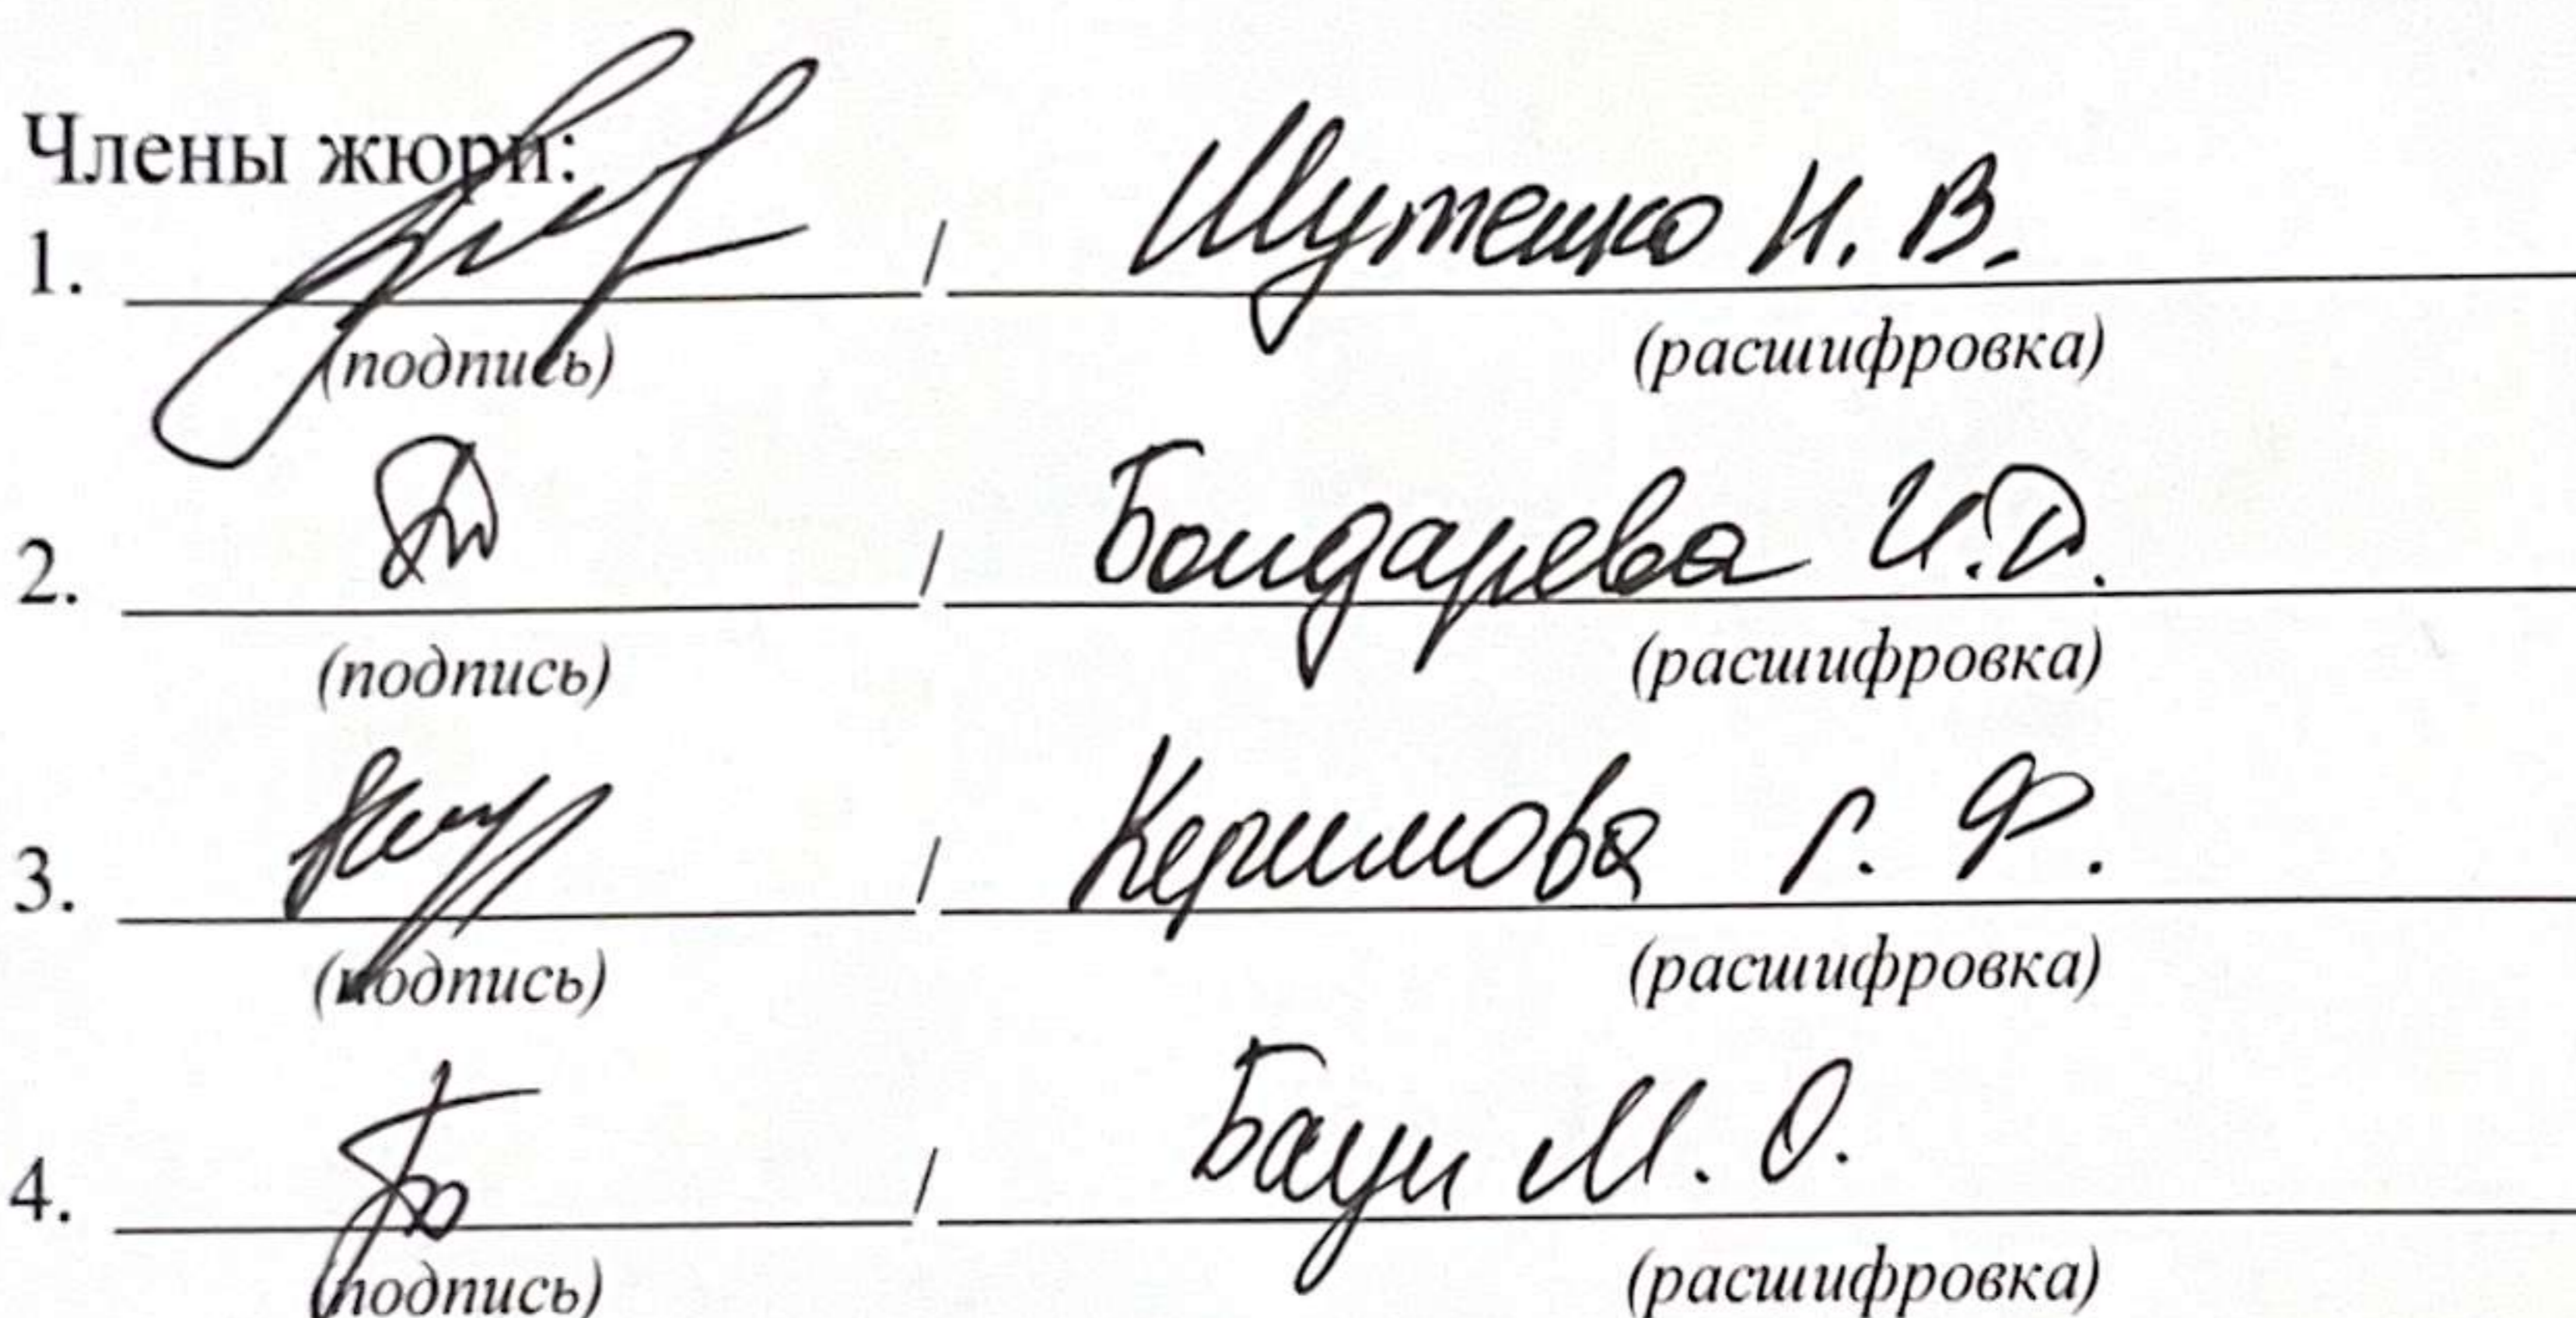 Члены жюри:
1. / Шутенко Н. В.
(подпись) (расшифровка)
2. / Бондарева И. Д.
(подпись) (расшифровка)
3. / Керимова Г. Ф.
(подпись) (расшифровка)
4. / М. О.
(подпись) (расшифровка)